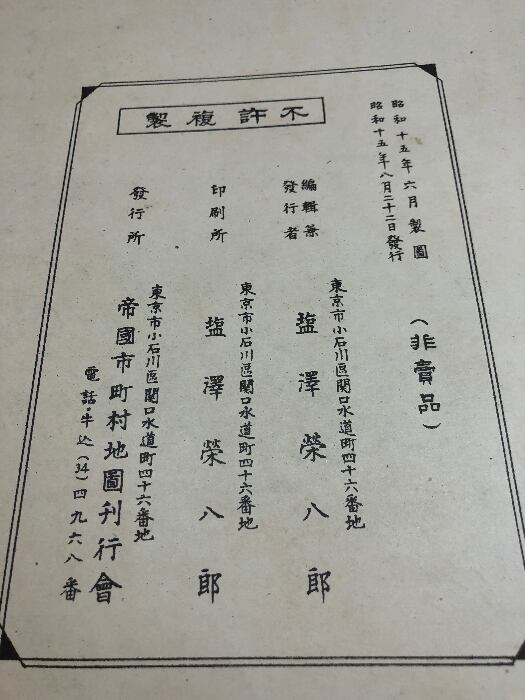 昭和十五年六月製圖
昭和十五年八月二十二日發行
(非賣品)
不許複製
編輯兼
發行者
東京市小石川區關口水道町四十六番地
塩澤榮八郎
印刷所
東京市小石川區關口水道町四十六番地
塩澤榮八郎
發行所
東京市小石川區關口水道町四十六番地
帝國市町村地圖刊行會
電話・牛込(34)四九六八番